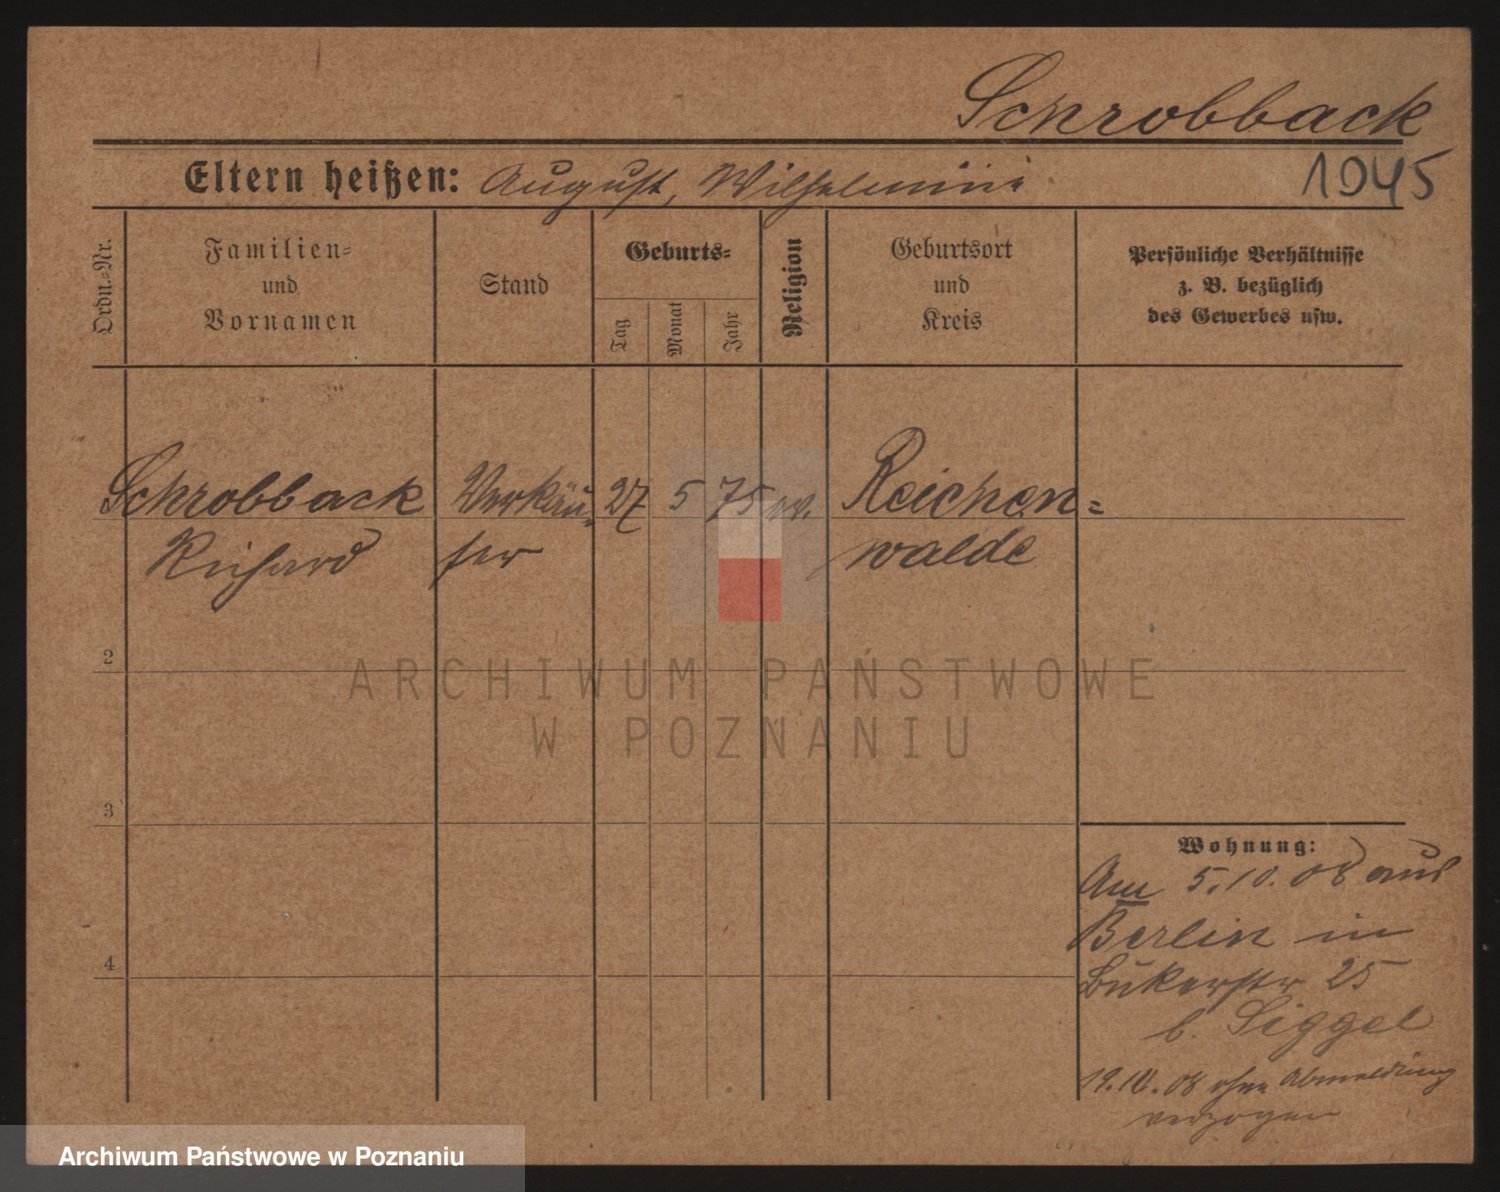 Schrobback
1045
Eltern heißen: August, Wilhelmine
Ordn.-Nr.
Familien-
und
Vornamen
Stand
Geburts-
Tag
Monat
Jahr
Religion
Geburtsort
und
Kreis
Persönliche Verhältnisse
z. B. bezüglich
des Gewerbes usw.
Schrobback Verkäu- 27 5 75 ev. Reichen-
Richard fer walde
2
3
4
Wohnung:
Am 5.10.08 aus
Berlin in
Bukerstr 25
b. Siggel
19.10.08 ohne Abmeldung
verzogen
ARCHIWUM PAŃSTWOWE
W POZNANIU
Archiwum Państwowe w Poznaniu